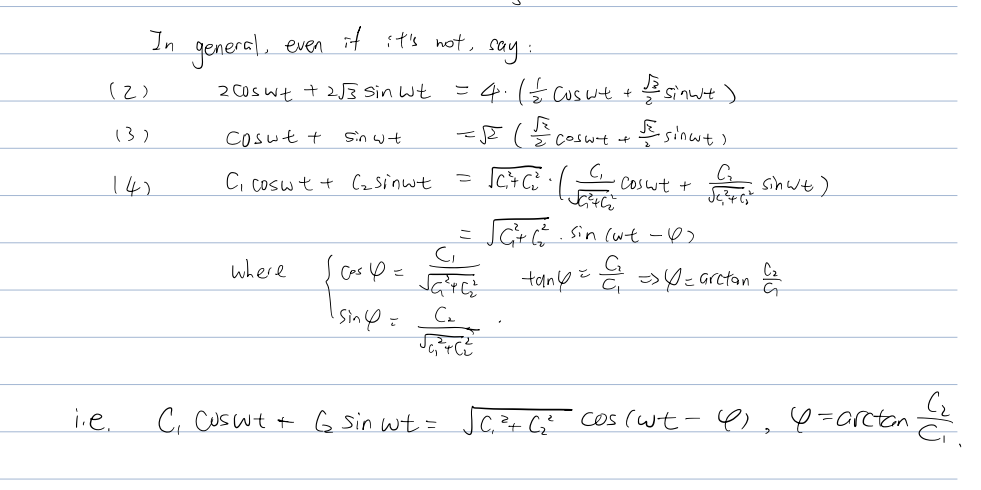 In general, even if it's not, say:
(2) 2cosωt + 2√3 sinωt = 4·(1/2 cosωt + √3/2 sinωt)
(3) cosωt + sinωt = √2 (√2/2 cosωt + √2/2 sinωt)
(4) C₁cosωt + C₂sinωt = √(C₁²+C₂²)·(C₁/√(C₁²+C₂²) cosωt + C₂/√(C₁²+C₂²) sinωt)
= √(C₁²+C₂²) · sin(ωt - φ)
where { cosφ = C₁/√(C₁²+C₂²) tanφ = C₂/C₁ ⇒ φ = arctan C₂/C₁
sinφ = C₂/√(C₁²+C₂²) .
i.e. C₁ cosωt + C₂ sinωt = √(C₁²+C₂²) cos(ωt - φ), φ = arctan C₂/C₁.